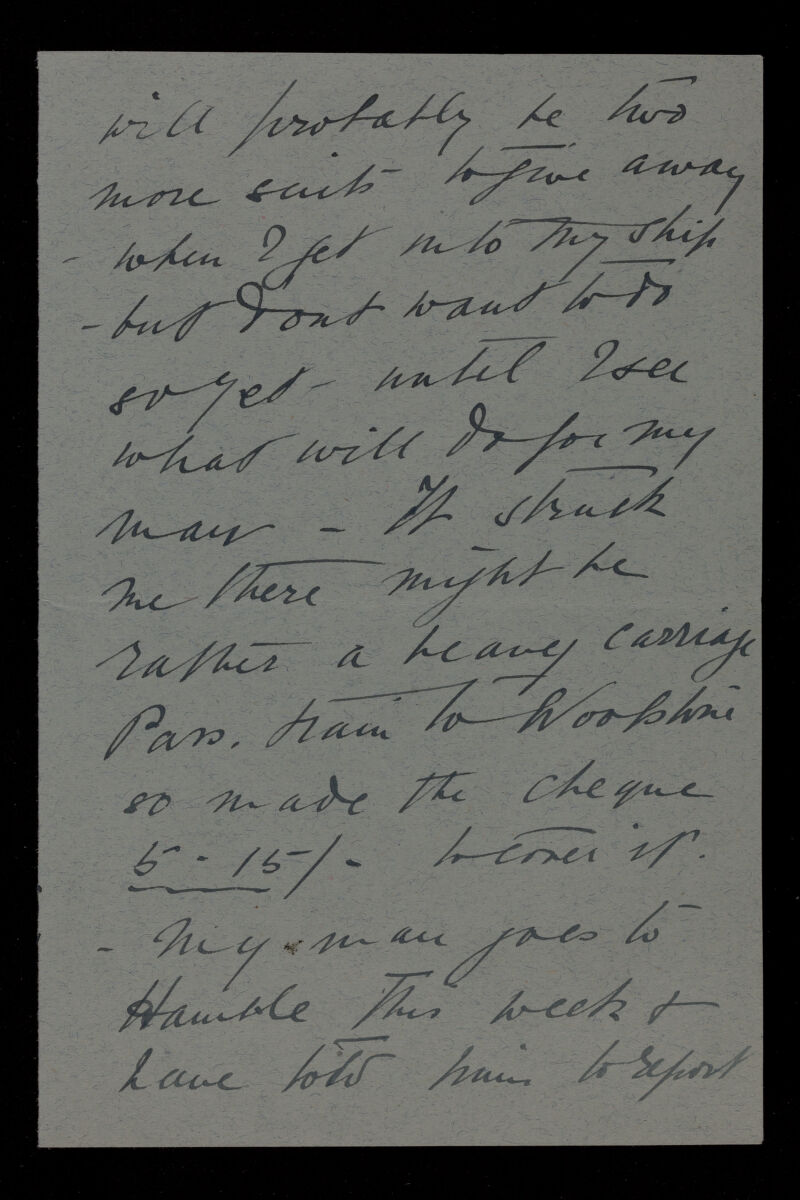 will probably be two
more suits to give away
- when I get into my ship
- but dont want to do
so yet - until I see
what will do for my
man - It struck
me there might be
rather a heavy carriage
Pass. train to Woolstone
so made the cheque
5 - 15/- to cover it.
- My man goes to
Hamble this week &
have told him to report